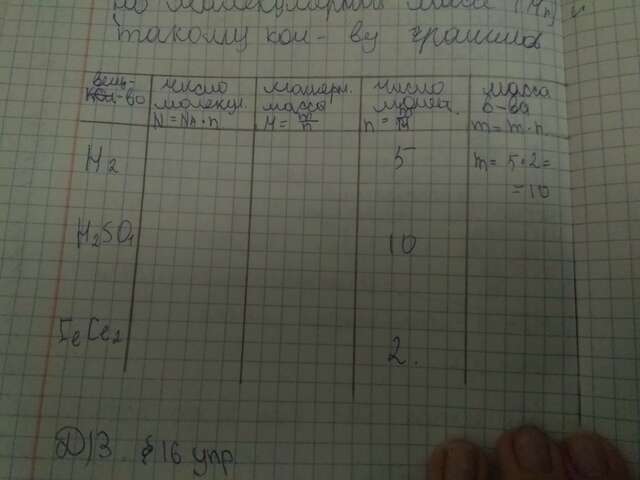 по молекулярной массе (Mr) и
такому кол-ву граммов
вещ-во
число молекул. N = NA · n
молярн. масса M = m/n
число молей. n = m/M
масса в-ва m = m · n.
H2 5 m = 5 · 2 =
= 10
H2SO4 10
FeCl2 2.
Д/З. § 16 упр.